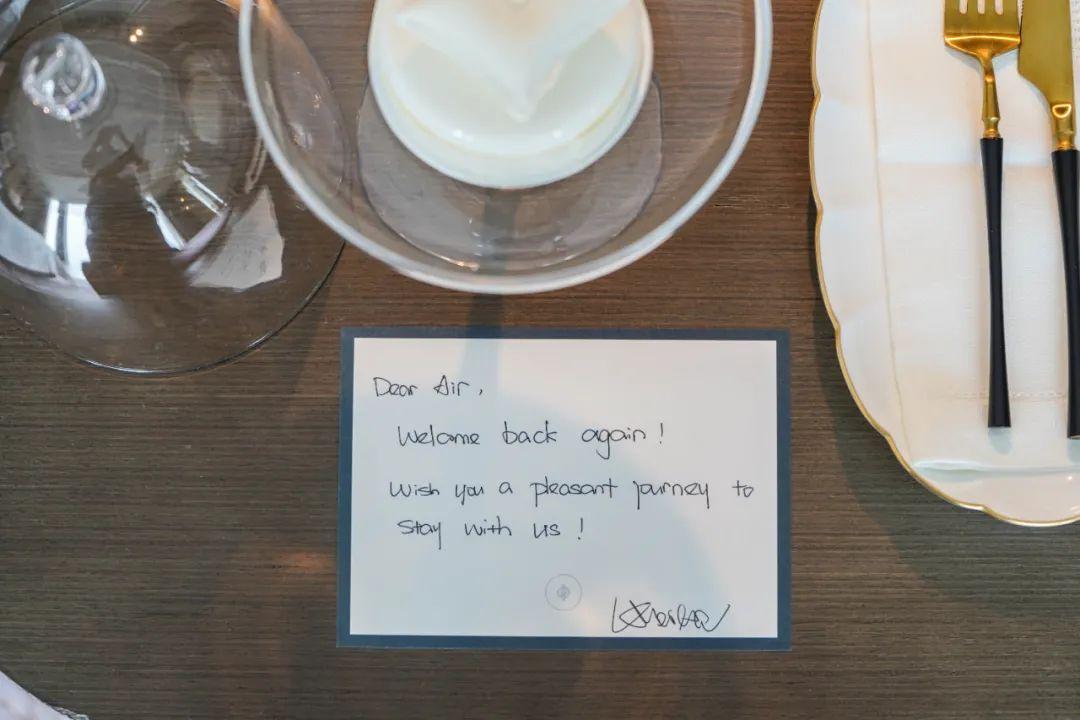 Dear Air,
Welcome back again!
Wish you a pleasant journey to
stay with us!